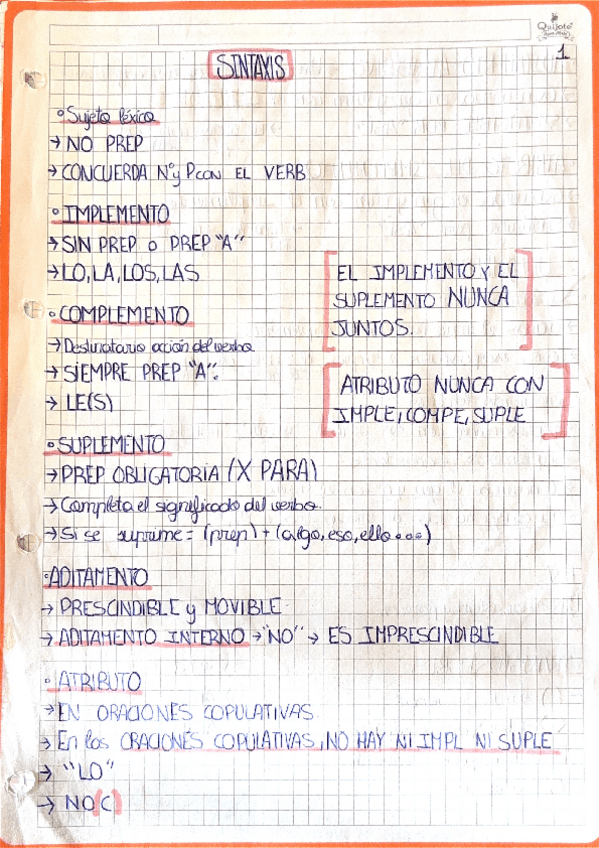 Quijote
1
SINTAXIS
° Sujeto léxico
→ NO PREP
→ CONCUERDA Nº y P CON EL VERB
° IMPLEMENTO
→ SIN PREP o PREP "A"
→ LO, LA, LOS, LAS
EL IMPLEMENTO Y EL
SUPLEMENTO NUNCA
JUNTOS.
° COMPLEMENTO
→ Destinatario acción del verbo
→ SIEMPRE PREP "A".
→ LE(S)
ATRIBUTO NUNCA CON
IMPLE, COMPE, SUPLE
° SUPLEMENTO
→ PREP OBLIGATORIA (X PARA)
→ Completa el significado del verbo.
→ Si se suprime = (prep) + (algo, eso, ello...)
° ADITAMENTO
→ PRESCINDIBLE y MOVIBLE
→ ADITAMENTO INTERNO → "NO" → ES IMPRESCINDIBLE
° ATRIBUTO
→ EN ORACIONES COPULATIVAS
→ En las ORACIONES COPULATIVAS, NO HAY NI IMPL NI SUPLE
→ "LO"
→ NO (C)